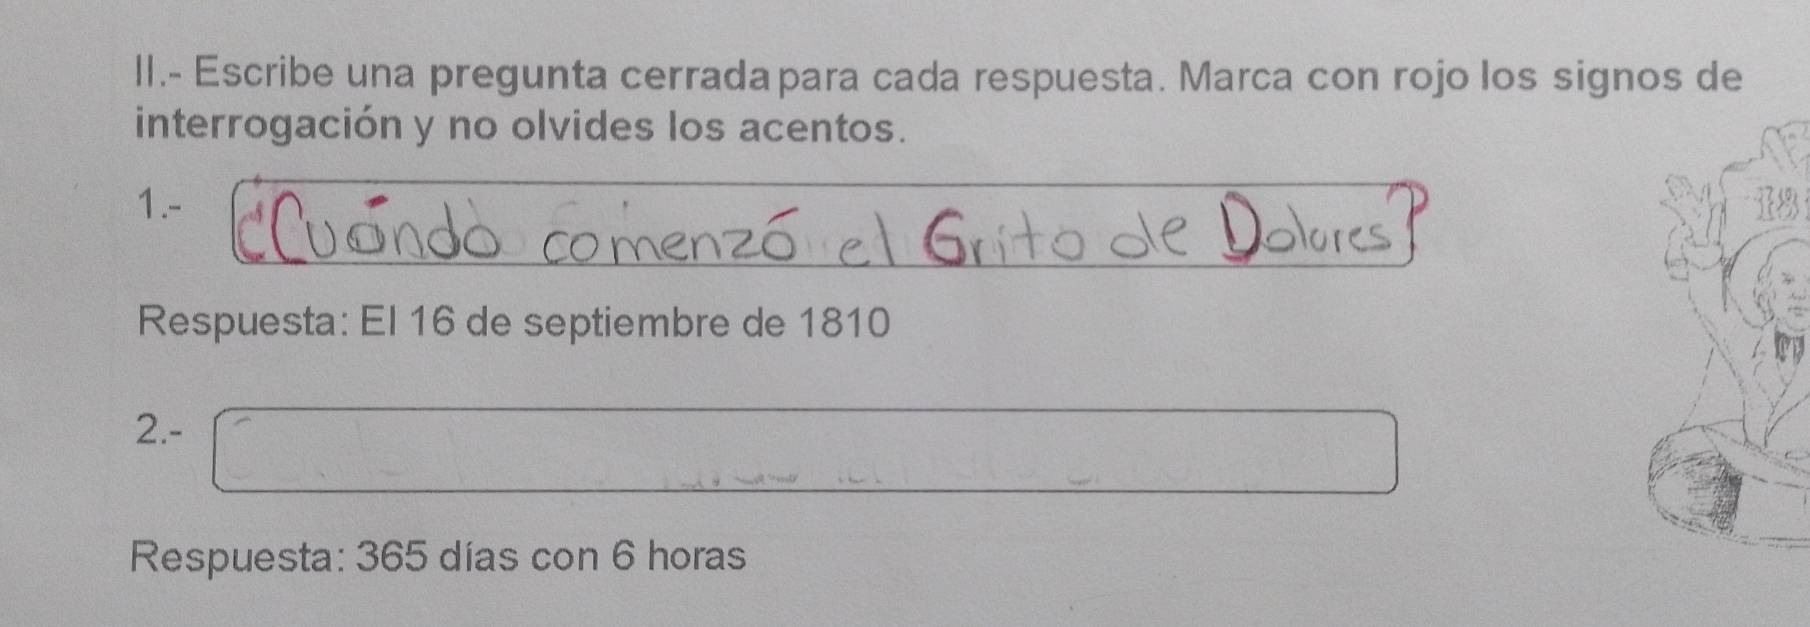 II.- Escribe una pregunta cerrada para cada respuesta. Marca con rojo los signos de
interrogación y no olvides los acentos.
1.- ¿Cuándo comenzó el Grito de Dolores?
Respuesta: El 16 de septiembre de 1810
2.-
Respuesta: 365 días con 6 horas